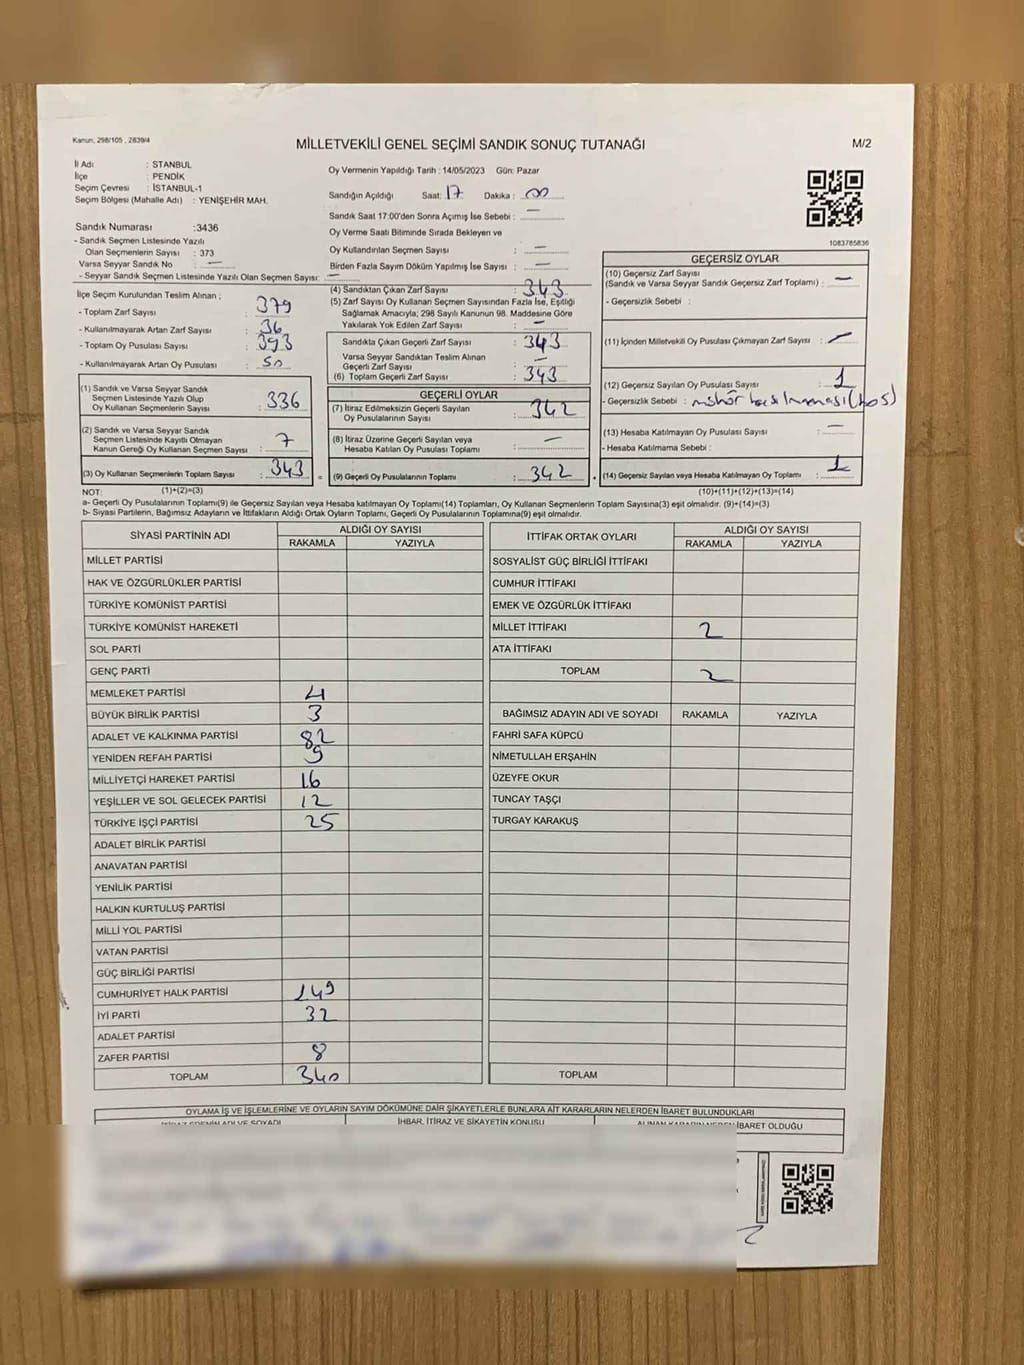 Kanun, 298/105 , 2839/4
MİLLETVEKİLİ GENEL SEÇİMİ SANDIK SONUÇ TUTANAĞI
M/2
İl Adı : İSTANBUL
İlçe : PENDİK
Seçim Çevresi : İSTANBUL-1
Seçim Bölgesi (Mahalle Adı) : YENİŞEHİR MAH.
Sandık Numarası :3436
- Sandık Seçmen Listesinde Yazılı
Olan Seçmenlerin Sayısı : 373
Varsa Seyyar Sandık No : —
- Seyyar Sandık Seçmen Listesinde Yazılı Olan Seçmen Sayısı: —
Oy Vermenin Yapıldığı Tarih : 14/05/2023 Gün: Pazar
Sandığın Açıldığı Saat: 17 Dakika : 00
Sandık Saat 17:00'den Sonra Açımış İse Sebebi : —
Oy Verme Saati Bitiminde Sırada Bekleyen ve
Oy Kullandırılan Seçmen Sayısı : —
Birden Fazla Sayım Döküm Yapılmış İse Sayısı : —
1083785836
İlçe Seçim Kurulundan Teslim Alınan ;
- Toplam Zarf Sayısı : 379
- Kullanılmayarak Artan Zarf Sayısı : 36
- Toplam Oy Pusulası Sayısı : 393
- Kullanılmayarak Artan Oy Pusulası : 50
(1) Sandık ve Varsa Seyyar Sandık
Seçmen Listesinde Yazılı Olup
Oy Kullanan Seçmenlerin Sayısı : 336
(2) Sandık ve Varsa Seyyar Sandık
Seçmen Listesinde Kayıtlı Olmayan
Kanun Gereği Oy Kullanan Seçmen Sayısı : 7
(3) Oy Kullanan Seçmenlerin Toplam Sayısı : 343
(1)+(2)=(3)
(4) Sandıktan Çıkan Zarf Sayısı : 343
(5) Zarf Sayısı Oy Kullanan Seçmen Sayısından Fazla İse, Eşitliği
Sağlamak Amacıyla; 298 Sayılı Kanunun 98. Maddesine Göre
Yakılarak Yok Edilen Zarf Sayısı : —
Sandıkta Çıkan Geçerli Zarf Sayısı : 343
Varsa Seyyar Sandıktan Teslim Alınan
Geçerli Zarf Sayısı : —
(6) Toplam Geçerli Zarf Sayısı : 343
GEÇERLİ OYLAR
(7) İtiraz Edilmeksizin Geçerli Sayılan
Oy Pusulalarının Sayısı : 342
(8) İtiraz Üzerine Geçerli Sayılan veya
Hesaba Katılan Oy Pusulası Toplamı : —
(9) Geçerli Oy Pusulalarının Toplamı : 342
GEÇERSİZ OYLAR
(10) Geçersiz Zarf Sayısı
(Sandık ve Varsa Seyyar Sandık Geçersiz Zarf Toplamı) : —
- Geçersizlik Sebebi :
(11) İçinden Milletvekili Oy Pusulası Çıkmayan Zarf Sayısı : —
(12) Geçersiz Sayılan Oy Pusulası Sayısı : 1
- Geçersizlik Sebebi : mühür basılmaması (boş)
(13) Hesaba Katılmayan Oy Pusulası Sayısı : —
- Hesaba Katılmama Sebebi :
(14) Geçersiz Sayılan veya Hesaba Katılmayan Oy Toplamı : 1
(10)+(11)+(12)+(13)=(14)
NOT:
a- Geçerli Oy Pusulalarının Toplamı(9) ile Geçersiz Sayılan veya Hesaba katılmayan Oy Toplamı(14) Toplamları, Oy Kullanan Seçmenlerin Toplam Sayısına(3) eşit olmalıdır. (9)+(14)=(3)
b- Siyasi Partilerin, Bağımsız Adayların ve İttifakların Aldığı Ortak Oyların Toplamı, Geçerli Oy Pusulalarının Toplamına(9) eşit olmalıdır.
SİYASİ PARTİNİN ADI
ALDIĞI OY SAYISI
RAKAMLA YAZIYLA
MİLLET PARTİSİ
HAK VE ÖZGÜRLÜKLER PARTİSİ
TÜRKİYE KOMÜNİST PARTİSİ
TÜRKİYE KOMÜNİST HAREKETİ
SOL PARTİ
GENÇ PARTİ
MEMLEKET PARTİSİ 4
BÜYÜK BİRLİK PARTİSİ 3
ADALET VE KALKINMA PARTİSİ 82
YENİDEN REFAH PARTİSİ 9
MİLLİYETÇİ HAREKET PARTİSİ 16
YEŞİLLER VE SOL GELECEK PARTİSİ 12
TÜRKİYE İŞÇİ PARTİSİ 25
ADALET BİRLİK PARTİSİ
ANAVATAN PARTİSİ
YENİLİK PARTİSİ
HALKIN KURTULUŞ PARTİSİ
MİLLİ YOL PARTİSİ
VATAN PARTİSİ
GÜÇ BİRLİĞİ PARTİSİ
CUMHURİYET HALK PARTİSİ 149
İYİ PARTİ 32
ADALET PARTİSİ
ZAFER PARTİSİ 8
TOPLAM 340
İTTİFAK ORTAK OYLARI
ALDIĞI OY SAYISI
RAKAMLA YAZIYLA
SOSYALİST GÜÇ BİRLİĞİ İTTİFAKI
CUMHUR İTTİFAKI
EMEK VE ÖZGÜRLÜK İTTİFAKI
MİLLET İTTİFAKI 2
ATA İTTİFAKI
TOPLAM 2
BAĞIMSIZ ADAYIN ADI VE SOYADI RAKAMLA YAZIYLA
FAHRİ SAFA KÜPCÜ
NİMETULLAH ERŞAHİN
ÜZEYFE OKUR
TUNCAY TAŞÇI
TURGAY KARAKUŞ
TOPLAM
OYLAMA İŞ VE İŞLEMLERİNE VE OYLARIN SAYIM DÖKÜMÜNE DAİR ŞİKAYETLERLE BUNLARA AİT KARARLARIN NELERDEN İBARET BULUNDUKLARI
İHBAR, İTİRAZ VE ŞİKAYETİN KONUSU
İBARET OLDUĞU